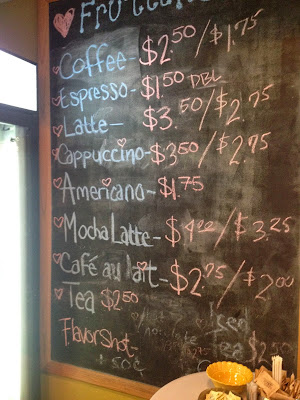 Coffee- $2.50/$1.75
Espresso- $1.50 DBL
Latte- $3.50/$2.75
Cappuccino- $3.50/$2.75
Americano- $1.75
Mocha Latte- $4.00/$3.25
Café au lait- $2.75/$2.00
Tea $2.50
Flavor Shot-
50¢